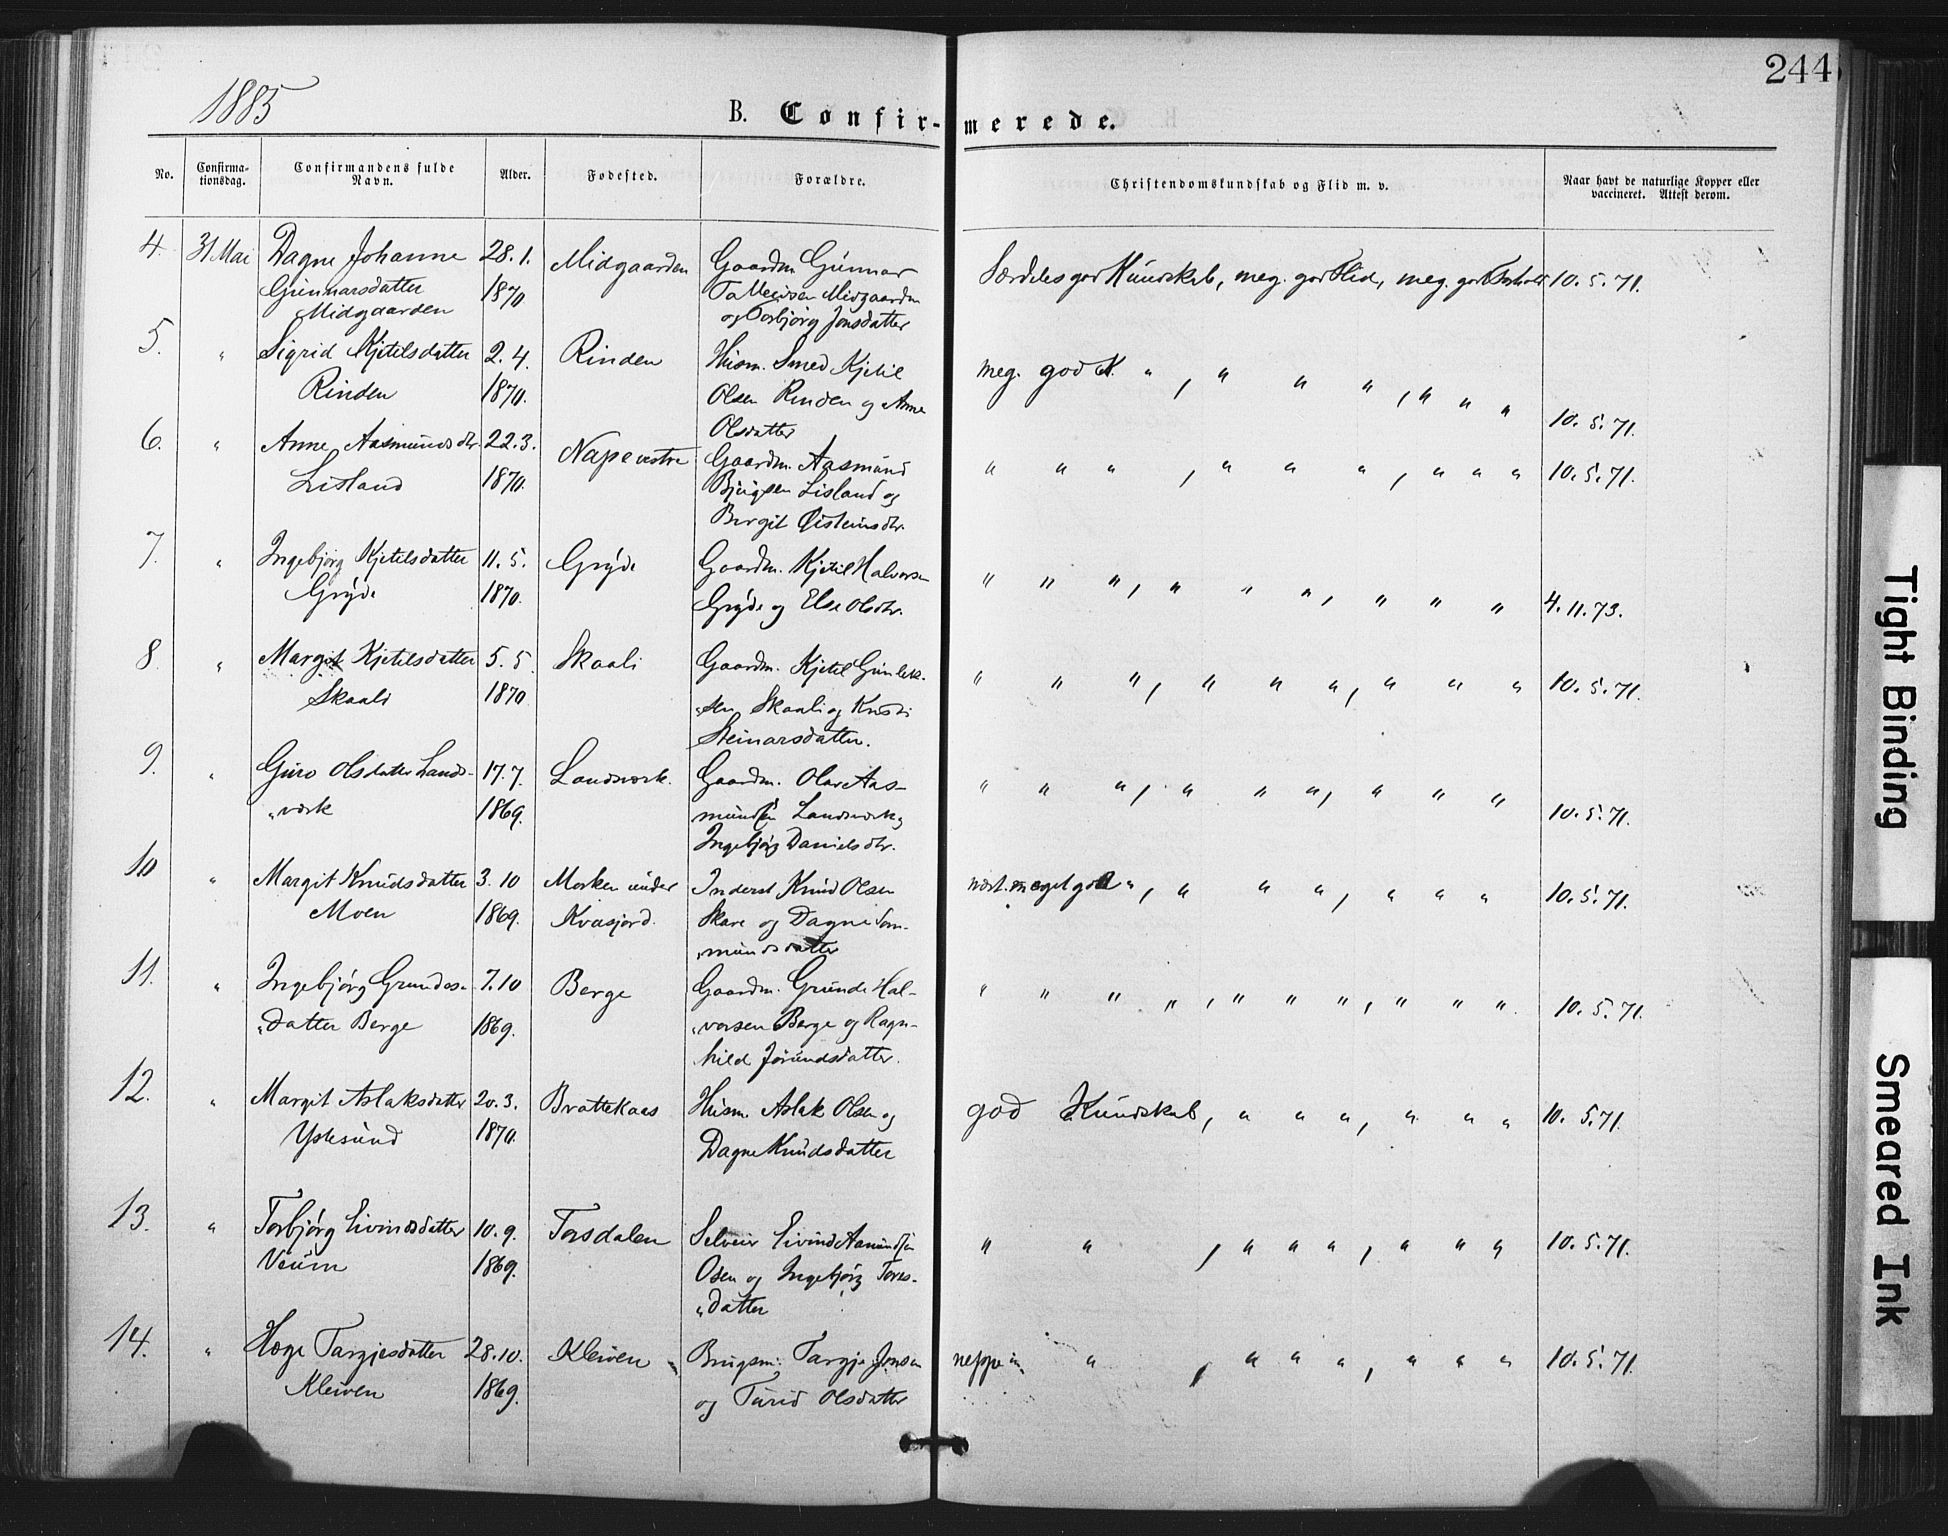 1885
244
B. Confir- merede.
No.
Confirma-
tionsdag.
Confirmandens fulde
Navn.
Alder.
Fødested.
Forældre.
Christendomskundskab og Flid m. v.
Naar havt de naturlige Kopper eller
vaccineret. Attest derom.
4. 31 Mai Dagne Johanne 28.1. Midgaarden Gaardm. Gunnar Særdeles god Kundskab, meg. god Flid, meg. god Forhold 10.5.71.
Gunnarsdatter 1870 Midgaarden
Midgaarden og Torbjørg Jonsdatter
5. " Sigrid Kjetilsdatter 2.4. Rinden Husm. Smed Kjetil meg. god K. " , " " " , " " "
Rinden 1870. Olsen Rinden og Anne 10.5.71.
Olsdatter
6. " Anne Aasmundsdtr. 22.3. Nape vestre Gaardm. Aasmund " " " , " " " , " " " 10.5.71.
Lisland 1870. Bjugsen Lisland og
Birgit Øisteinsdtr.
7. " Ingebjørg Kjetilsdatter 11.5. Gryde Gaardm. Kjetil Halvorsen " " " , " " " , " " " 4.11.73.
Gryde 1870. Gryde og Else Olsdtr.
8. " Margit Kjetilsdatter 5.5. Skaali Gaardm. Kjetil Gunleik- " " " , " " " , " " " 10.5.71.
Skaali 1870 "sen Skaali og Kristi
Steinarsdatter.
9. " Guro Olsdatter Lands- 17.7. Landsverk. Gaardm. Olav Aas- " " " , " " " , " " "
"værk 1869. mundsen Landsverk og 10.5.71.
Ingebjørg Danielsdtr.
10 " Margit Knudsdatter 3.10 Morken under Inderst Knud Olsen næst. meget god " , " " " , " " " 10.5.71.
Moen 1869. Kvasjord. Skare og Dagne Som-
"mundsdatter
11. " Ingebjørg Grundes- 7.10 Berge Gaardm. Grunde Hal- " " " " , " " " , " " " 10.5.71.
"datter Berge 1869. "vorsen Berge og Ragn-
hild Jørundsdatter.
12. " Margit Aslaksdatter 20.3. Brattekaas Husm. Aslak Olsen og god Kundskab, " " " , " " " 10.5.71.
Ystesund 1870. Dagne Knudsdatter
13. " Torbjørg Eivindsdatter 10.9. Torsdalen Selveier Eivind Aamundsen " " , " " " , " " " 10.5.71.
Veum 1869. Osen og Ingebjørg Tores-
"datter
14. " Hæge Targjesdatter 28.10. Kleiven Brugsm. Targje Jonsen neppe " , " " " , " " " 10.5.71.
Kleiven 1869. og Turid Olsdatter
Tight Binding
Smeared Ink